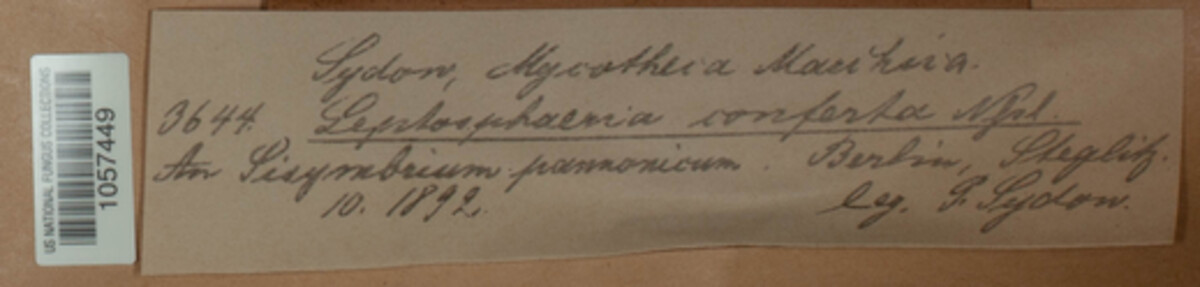 US NATIONAL FUNGUS COLLECTIONS
1057449
Sydow, Mycotheca Marchica.
3644. Leptosphaeria conferta Nssl.
An Sisymbrium pannonicum. Berlin, Steglitz.
10. 1892. leg. P. Sydow.